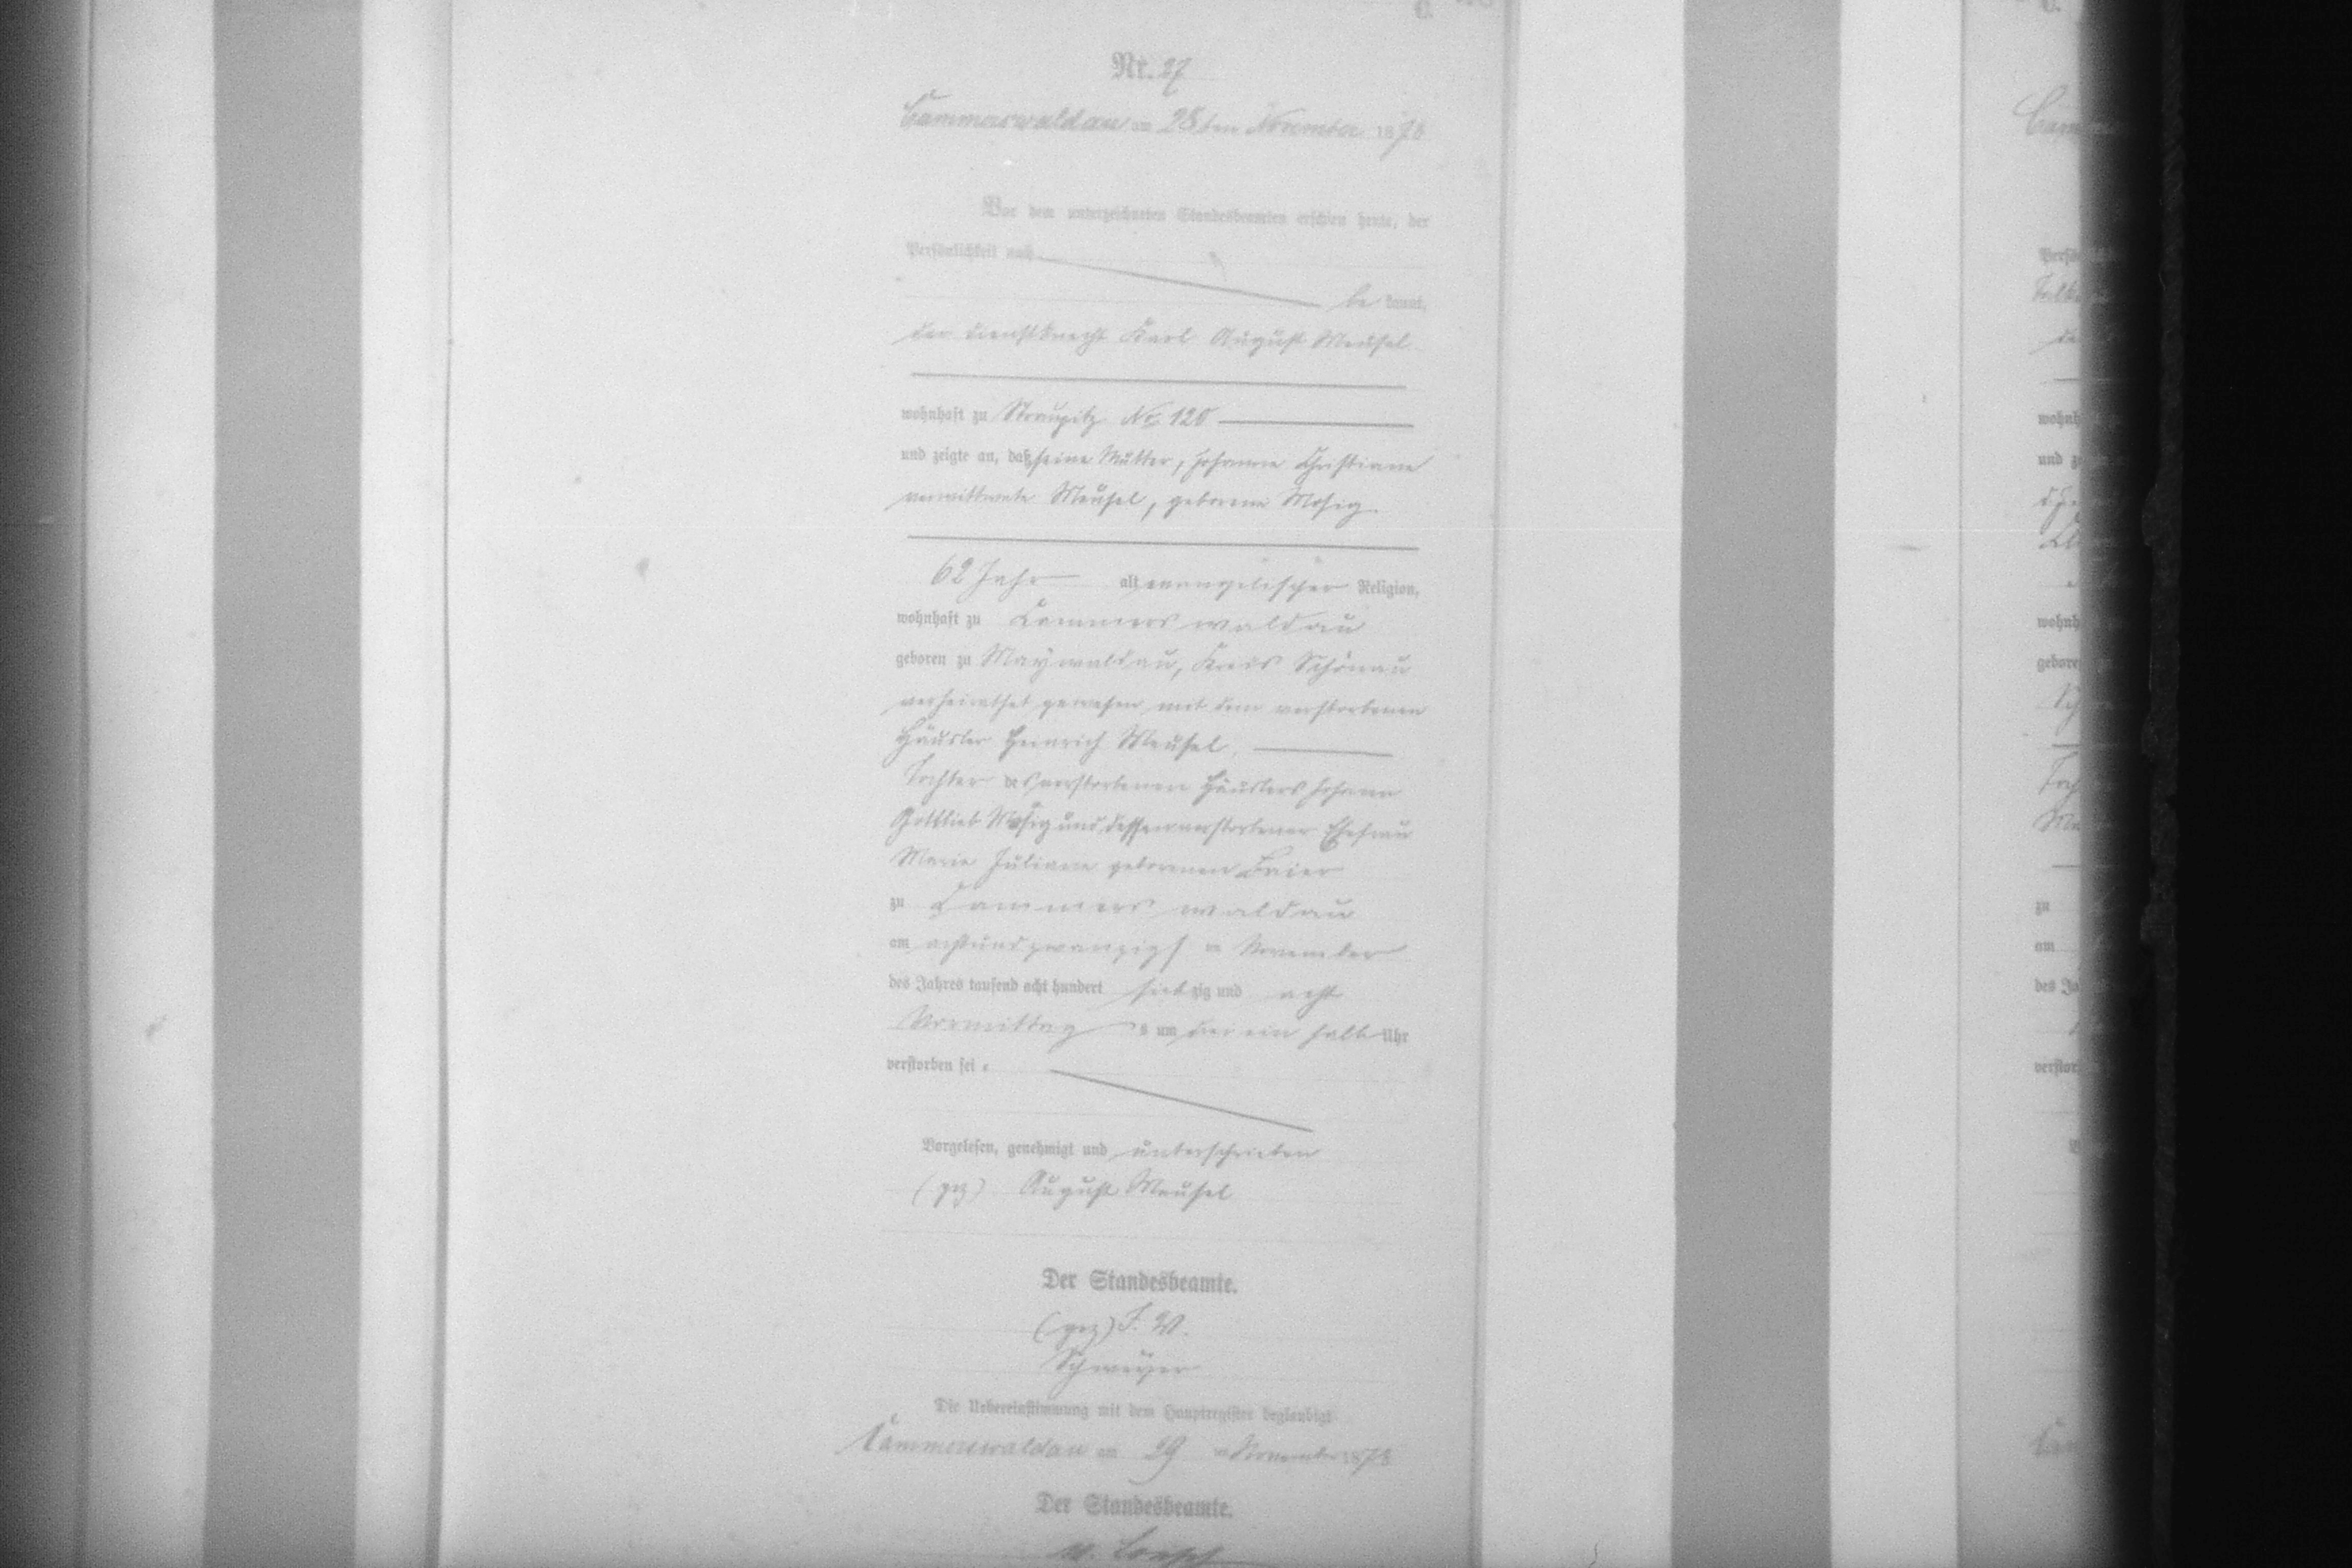 C.
Nr. 27
Cammerswaldau am 28ten November 1878
Vor dem unterzeichneten Standesbeamten erschien heute, der
Persönlichkeit nach
be kannt,
der Dienstknecht Karl August Meusel
wohnhaft zu Straupitz No. 120
und zeigte an, daß seine Mutter, Johanne Christiane
verwittwete Meusel, geborene Mosig
62 Jahr alt evangelischer Religion,
wohnhaft zu Cammerswaldau
geboren zu Maywaldau, Kreis Schönau
verheirathet gewesen mit dem verstorbenen
Häusler Heinrich Meusel.
Tochter des verstorbenen Häuslers Johann
Gottlieb Mosig und dessen verstorbener Ehefrau
Marie Juliane geborenen Baier
zu Cammerswaldau
am achtundzwanzigsten November
des Jahres tausend acht hundert siebzig und acht
Vormittags um drei ein halb Uhr
verstorben sei.
Vorgelesen, genehmigt und unterschrieben
(gez) August Meusel
Der Standesbeamte.
(gez) F. W.
Die Uebereinstimmung mit dem Hauptregister beglaubigt
Cammerswaldau am 29 ten November 1878
Der Standesbeamte.